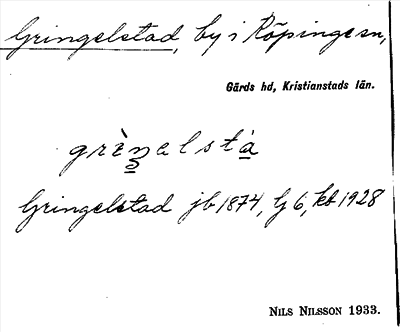 Gringelstad, by i Köpinge sn,
Gärds hd, Kristianstads län.
grèŋelstà
Gringelstad jb 1874, Gj 6, kb 1928
NILS NILSSON 1933.